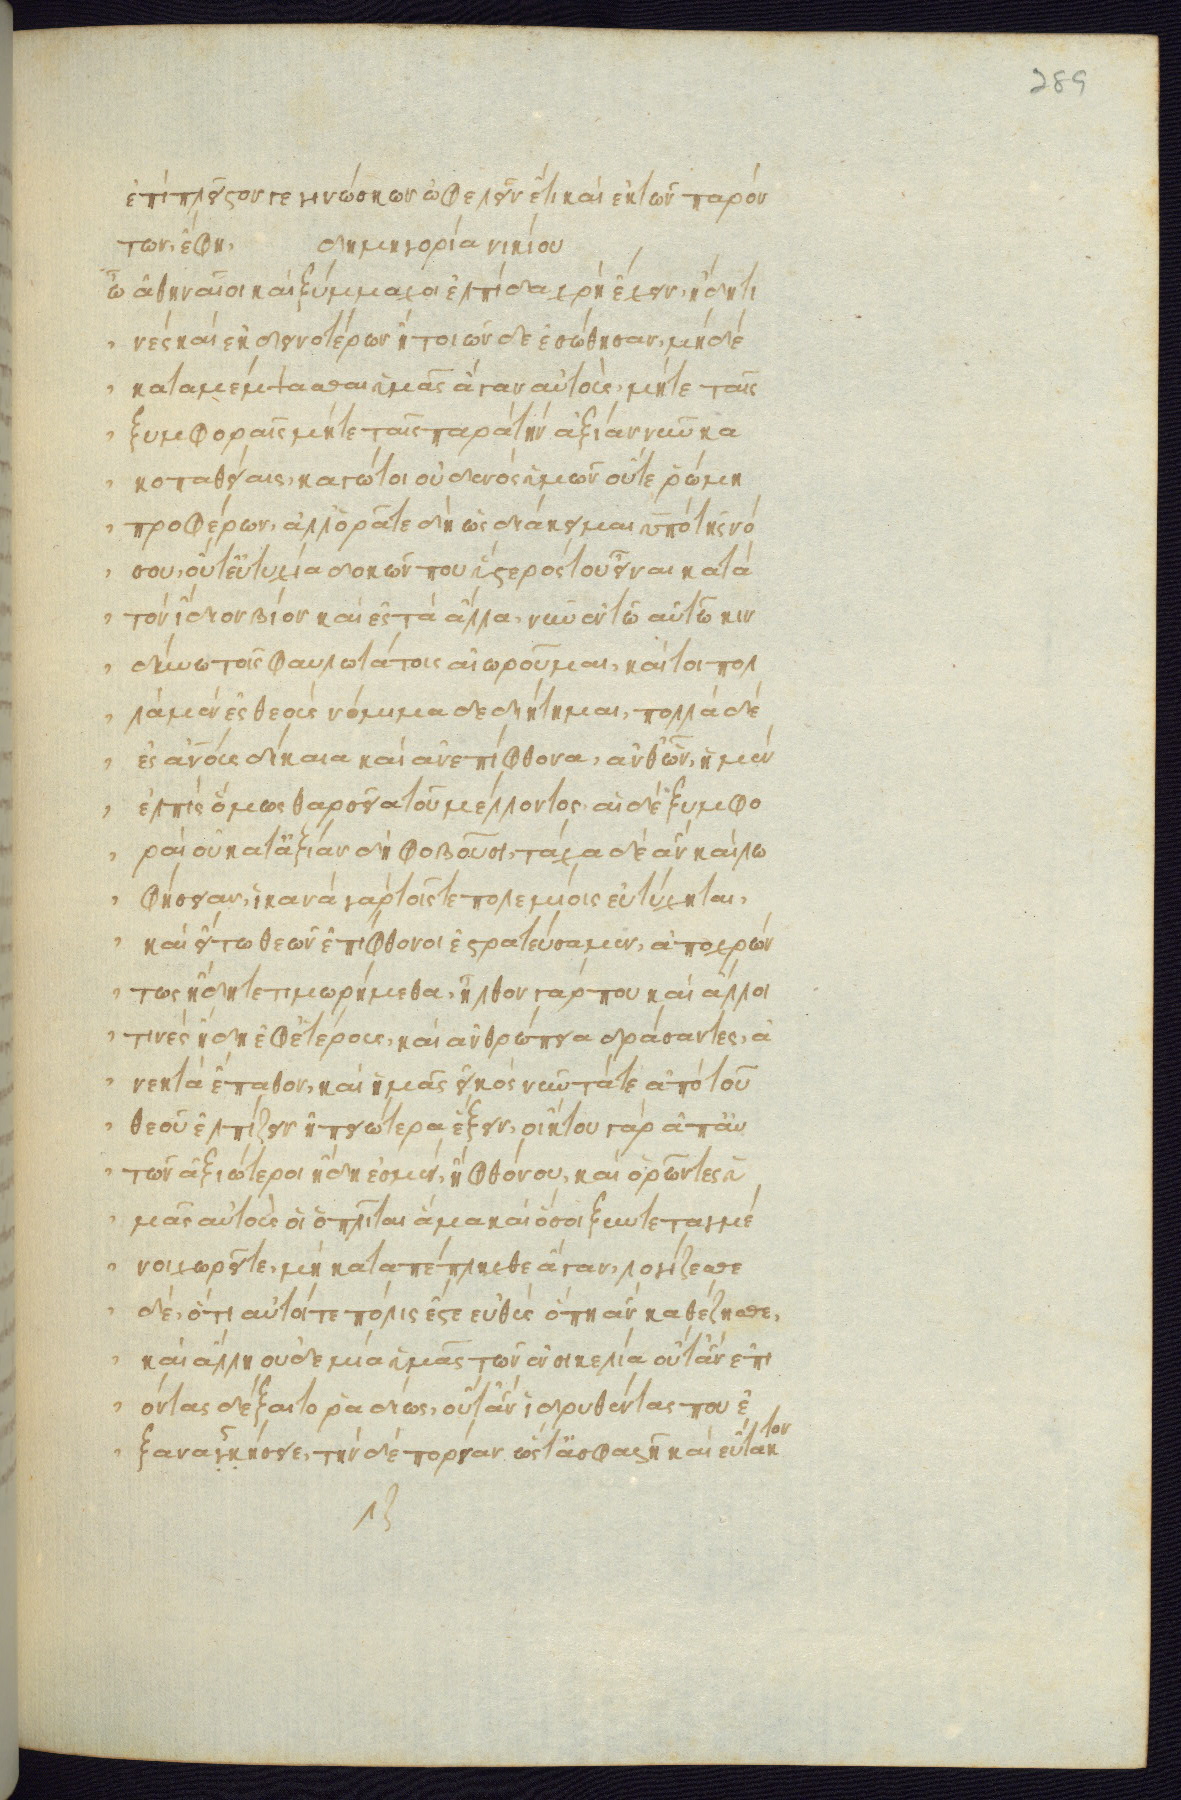 289
ἐπὶ πλεῖστον γεγωνίσκων ὠφελεῖν ἔτι καὶ ἐκ τῶν παρόν
των, ἔφη, δημηγορία νικίου
ὦ ἀθηναῖοι καὶ ξύμμαχοι ἐλπίδα χρὴ ἔχειν, ἤδη τι
νὲς καὶ ἐκ δεινοτέρων ἢ τοιῶνδε ἐσώθησαν, μηδὲ
καταμέμψασθαι ὑμᾶς ἄγαν αὐτοὺς, μήτε ταῖς
ξυμφοραῖς μήτε ταῖς παρὰ τὴν ἀξίαν νῦν κα
κοπαθείαις, κἀγώ τοι οὐδενὸς ὑμῶν οὔτε ῥώμη
προφέρων, ἀλλ' ὁρᾶτε δὴ ὡς διάκειμαι ὑπὸ τῆς νό
σου, οὔτ' εὐτυχία δοκῶν που ὕστερός του εἶναι κατὰ
τὸν ἴδιον βίον καὶ ἐς τὰ ἄλλα, νῦν ἐν τῷ αὐτῷ κιν
δύνῳ τοῖς φαυλωτάτοις αἰωροῦμαι, καίτοι πολ
λὰ μὲν ἐς θεοὺς νόμιμα δεδιήτημαι, πολλὰ δὲ
ἐς ἀν̅ους δίκαια καὶ ἀνεπίφθονα, ἀνθ' ὧν, ἡ μὲν
ἐλπὶς ὅμως θαρσεῖα τοῦ μέλλοντος, αἱ δὲ ξυμφο
ραὶ οὐ κατ' ἀξίαν δὴ φοβοῦσι, τάχα δὲ ἂν καὶ λω
φήσειαν, ἱκανὰ γὰρ τοῖς τε πολεμίοις εὐτύχηται,
καὶ εἴ τῳ θεῶν ἐπίφθονοι ἐστρατεύσαμεν, ἀποχρών
τως ἤδη τετιμωρήμεθα, ἦλθον γάρ που καὶ ἄλλοι
τινὲς ἤδη ἐφ' ἑτέρους, καὶ ἀνθρώπεια δράσαντες, ἀ
νεκτὰ ἔπαθον, καὶ ἡμᾶς εἰκὸς νῦν τά τε ἀπὸ τοῦ
θεοῦ ἐλπίζειν ἠπιώτερα ἕξειν, οἴκτου γὰρ ἀπ' αὐ
τῶν ἀξιώτεροι ἤδη ἐσμὲν, ἢ φθόνου, καὶ ὁρῶντες ὑ
μᾶς αὐτοὺς οἷοι ὁπλῖται ἅμα καὶ ὅσοι ξυντεταγμέ
νοι χωρεῖτε, μὴ καταπέπληχθε ἄγαν, λογίζεσθε
δὲ, ὅτι αὐτοί τε πόλις ἐστὲ εὐθὺς ὅπη ἂν καθέζησθε,
καὶ ἄλλη οὐδεμία ὑμᾶς τῶν ἐν σικελία οὔτ' ἂν ἐπι
όντας δέξαιτο ῥαδίως, οὔτ' ἂν ἱδρυθέντας που ἐ
ξαναγκήσειε, τὴν δὲ πορείαν ὥστ' ἀσφαλῆ καὶ εὔτακτον